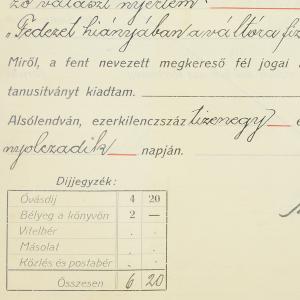 zó választ nyertem:
"Fedezet hiányjában a váltóra fiz
Miről, a fent nevezett megkereső fél jogai
tanusitványt kiadtam.
Alsólendván, ezerkilenczszáz tizenegy
nyolczadik napján.
Díjjegyzék:
Óvásdíj 4 20
Bélyeg a könyvön 2 —
Vitelbér . .
Másolat . .
Közlés és postabér . .
Összesen 6 20